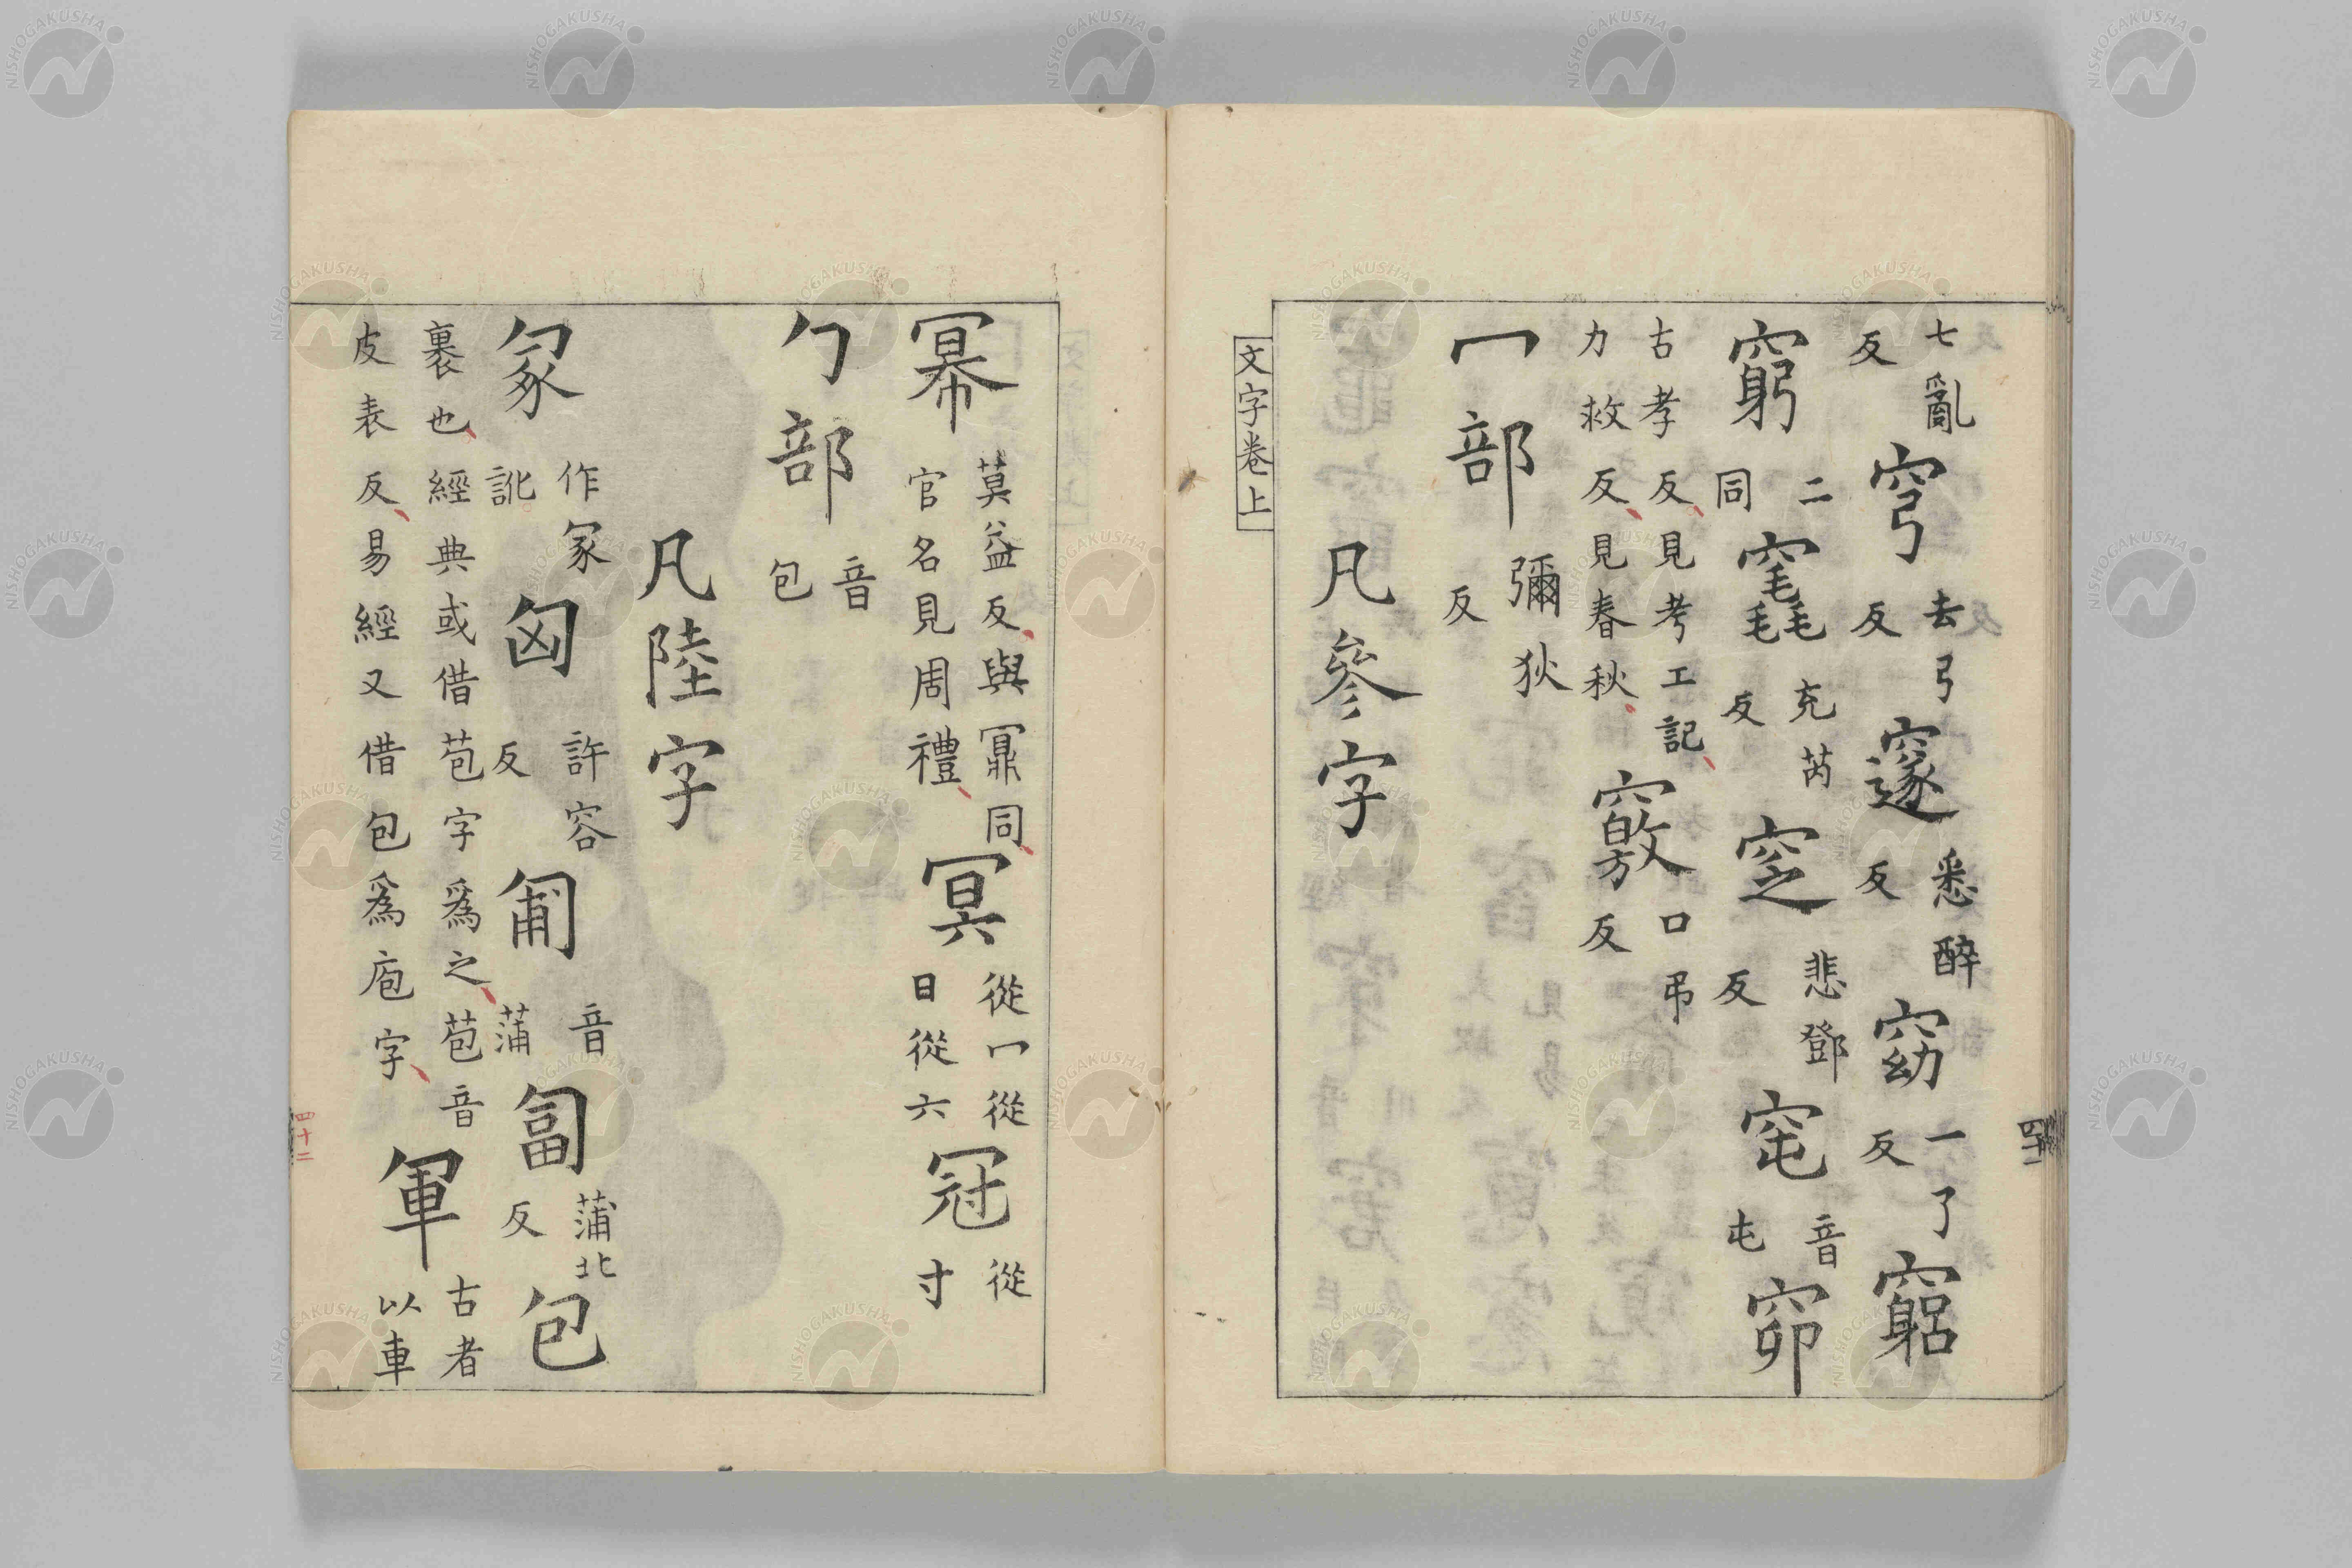 七亂反穹去弓反邃悉醉反窈一了反竆
窮二同竁充芮反窆悲鄧反窀音屯窌
古孝反見考工記力救反見春秋竅口弔反
冖部彌狄反
凡參字
文字卷上
冪莫益反與鼏同官名見周禮冥從冖從日從六冠從寸
勹部音包
凡陸字
冢作冡訛匈許容反匍音蒲匐蒲北反包
裹也經典或借苞字爲之苞音皮表反易經又借包爲庖字軍古者以車
四十二
NISHOGAKUSHA